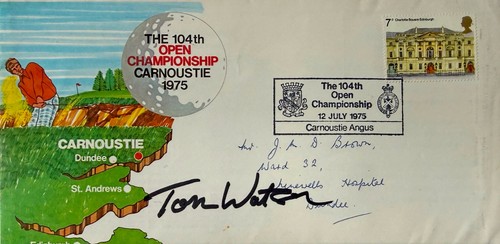 THE 104th
OPEN
CHAMPIONSHIP
CARNOUSTIE
1975
7p Charlotte Square, Edinburgh
The 104th
Open
Championship
12 JULY 1975
Carnoustie Angus
CARNOUSTIE
Dundee
St. Andrews
Mr. J. M. D. Brown,
Ward 32,
Hospital
Dundee.
Tom Watson